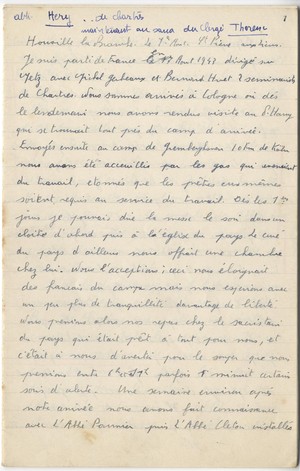 abbé Hery .. de chartres
maintenant au sana du clergé Thorenc
1
Je suis parti de France le 1er Aout 1943 dirigé sur
Metz avec Michel et Bernard Huet 2 séminaristes
de Chartres. Nous sommes arrivés à Cologne où dès
le lendemain nous avons rendu visite au P. Harry
qui se trouvait tout près du camp d'arrivée.
Envoyés ensuite au camp de 10 km de
nous avons été accueillis par les gas qui revenaient
du travail, étonnés que les prêtres eux mêmes
soient requis au service du travail. Dès les 1ers
jours je pouvais dire la messe le soir dans un
cloître d'abord puis à l'église du pays le curé
du pays d'ailleurs nous offrait une chambre
chez lui. Nous l'acceptions; ceci nous éloignait
des français du camp mais nous espérions avoir
un peu plus de tranquillité davantage de liberté
Nous prenions alors nos repas chez le sacristain
du pays qui était prêt à tout pour nous, et
c'était à nous d'avertir pour le souper que nous
prenions entre et 7h parfois minuit certains
soirs d'alerte. Une semaine environ après
notre arrivée nous avons fait connaissance
avec l'Abbé puis l'Abbé Cleton installés